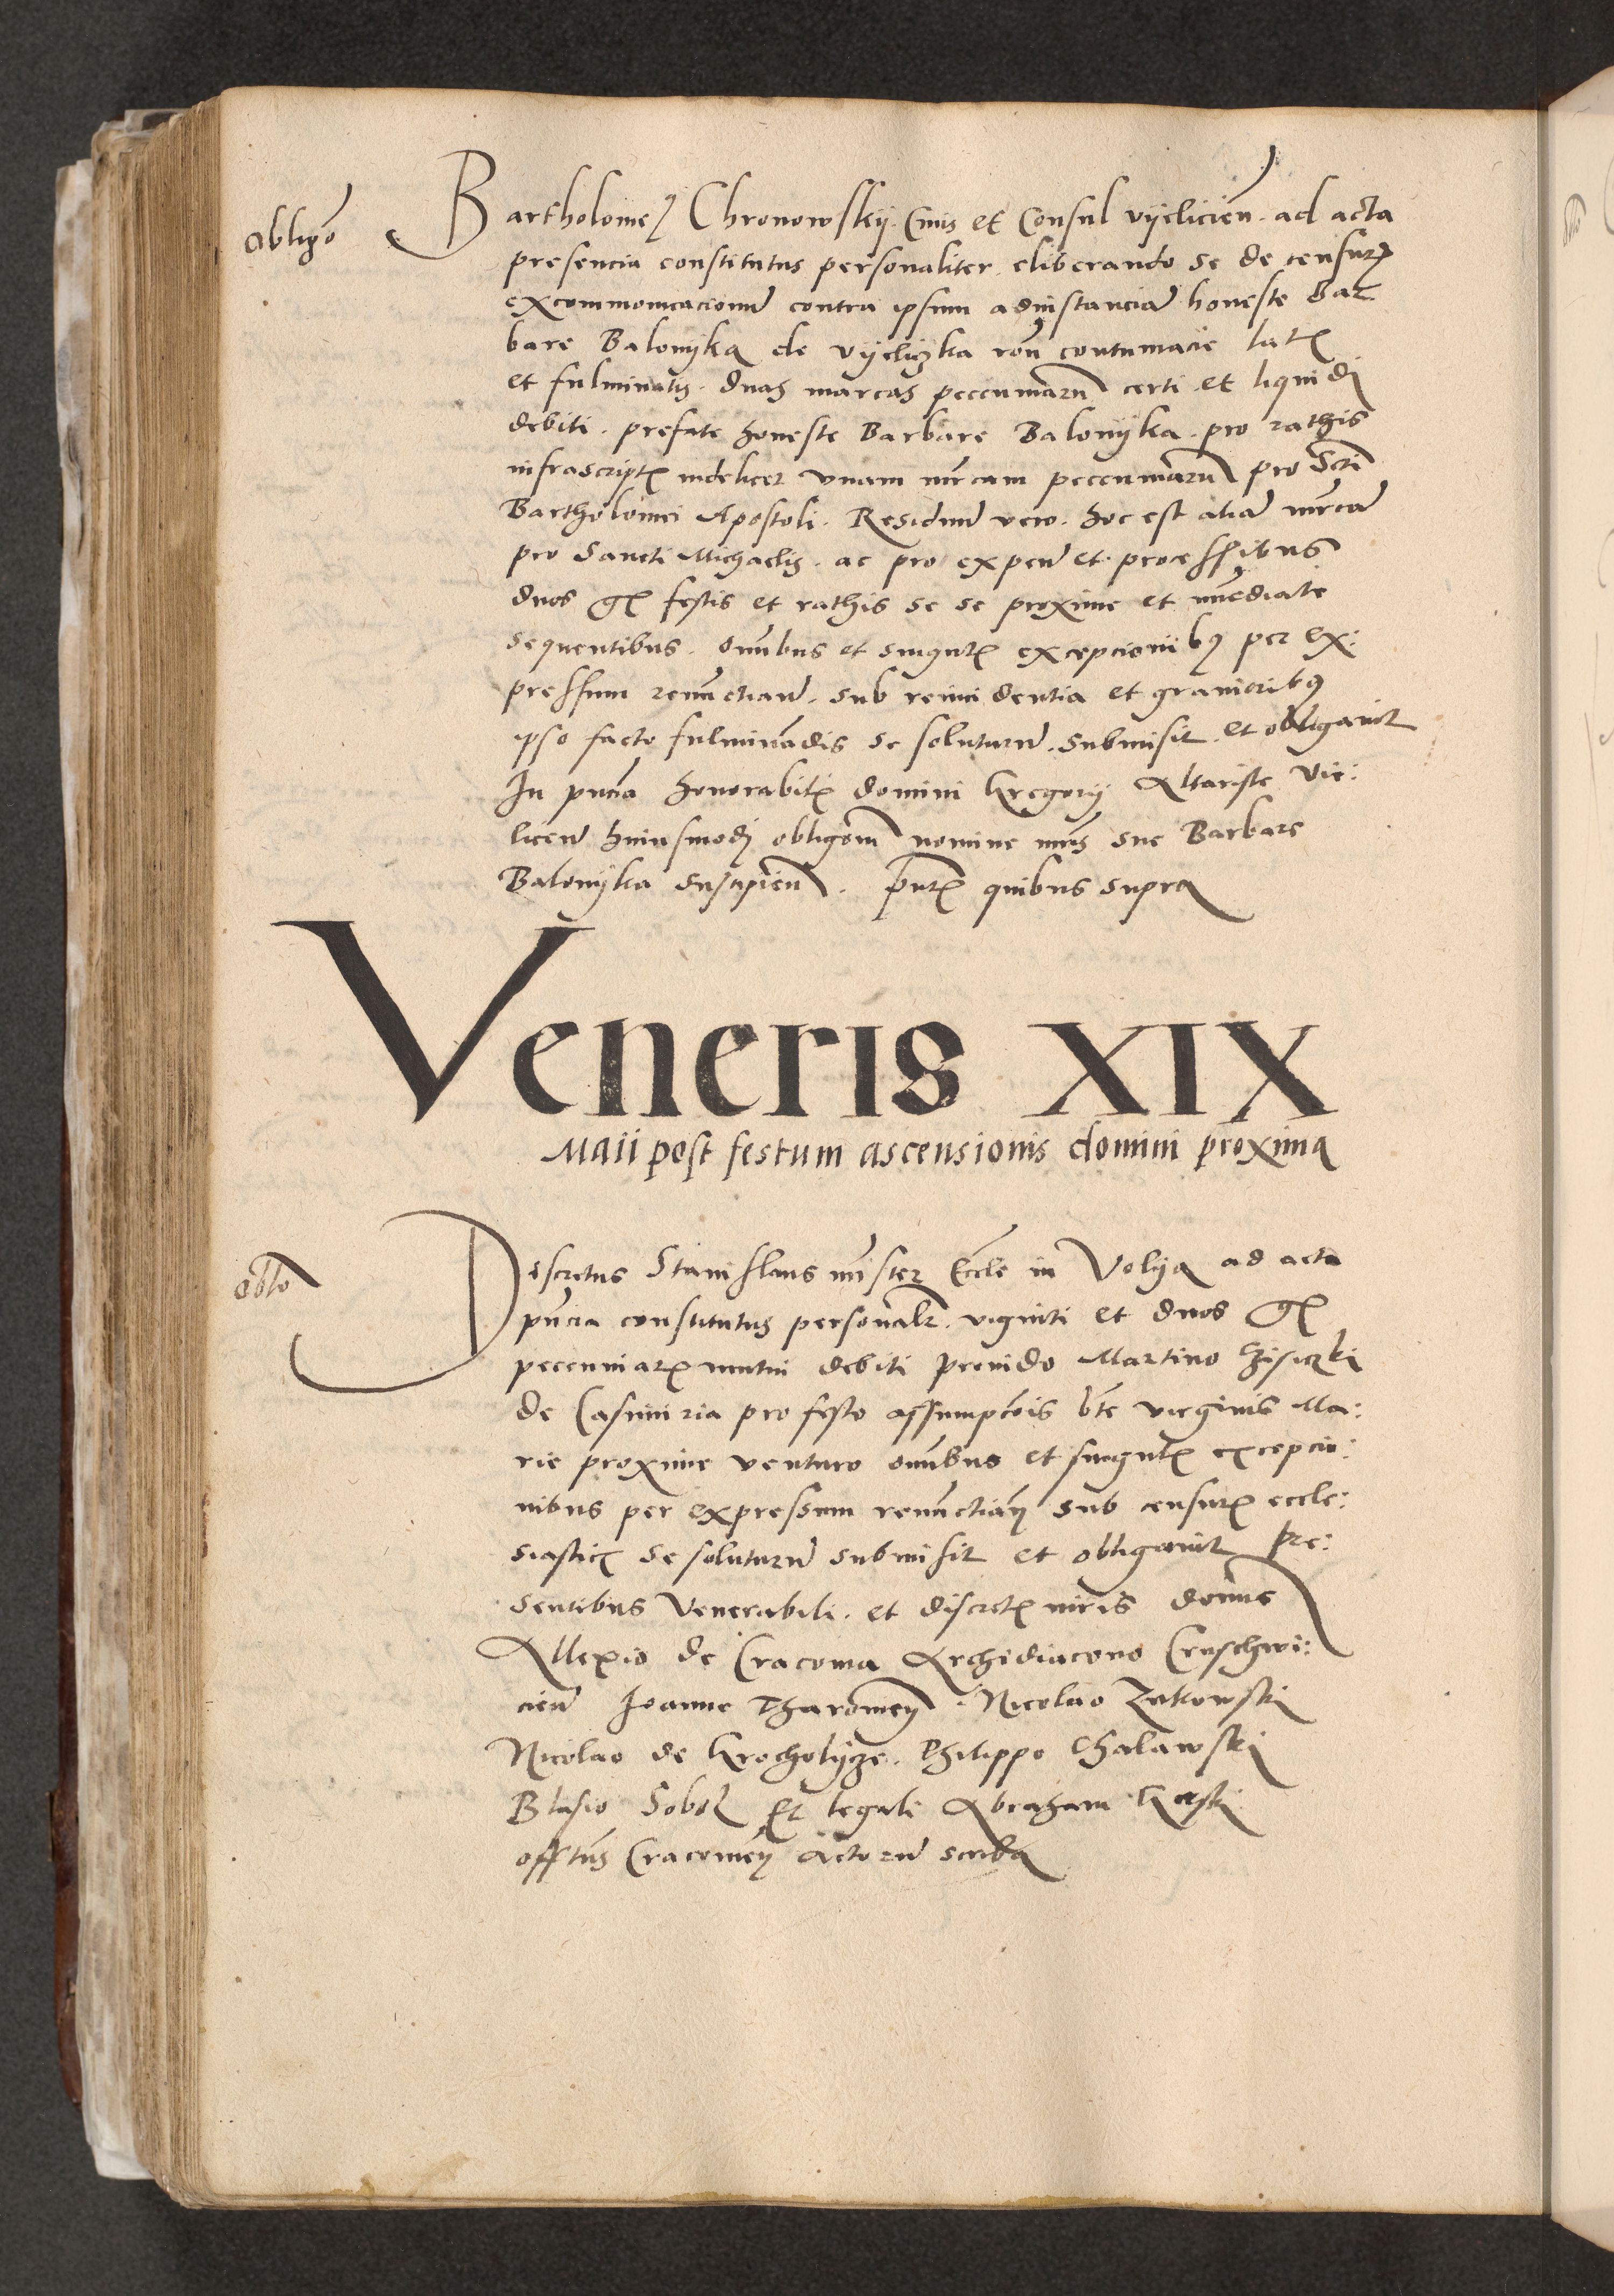 obligo
Bartholome9 Chronowskij. Civis et Consul vijelicien. ad acta
presencia constitutus personaliter. eliberando se de censur
excommonicacionum contra ipsum ad instanciam honeste Bar
bare Balonijka de vijelijzka ron contumacie lat
et fulminatis. duas marcas peccuniarum certi et liquidi
debiti. prefate honeste Barbare Balonijka. pro rathis
infrascript videlicet vnam mrcam peccuniarum pro Scti
Bartholomei Apostoli. Residuum vero. hoc est aliam mrcam
pro Sancti Michaelis. ac pro expen et processibus
duos gr festis et rathis se se proxime et immediate
sequentibus. omnibus et singul excepcionib9 per ex:
pressum renunctian. sub reincidentia et graviorib9
ipso facto fulminadis se soluturum. submisit. et obligavit
In pncia honorabil domini Gregorij Altariste vie:
licen huiusmodi obligom nomine mris sue Barbare
Balonijka suscipien. pntl quibus supra
Veneris XIX
Maii post festum ascensionis domini proxima
oblo
Discretus Stanislaus mister Eccle in Volya ad acta
pncia constitutus personalr. viginti et duos gr
peccuniar mutui debiti provido Martino
de Casimiria pro festo assumpcois bte virginis Ma:
rie proxime venturo omnibus et singul excepcio:
nibus per expressum renunctian sub censur eccle:
siastic se soluturum submisit et obligavit Pre:
sentibus Venerabili. et discret viris domne
Allexio de Cracovia Archidiacono Cruschwi:
cien Joanne Nicolao Zukowski
Nicolao de Krocholijcze. Philippo Chalawski
Blasio Sobol Et legali Abraham
offltus Cracovien Actorum scriba